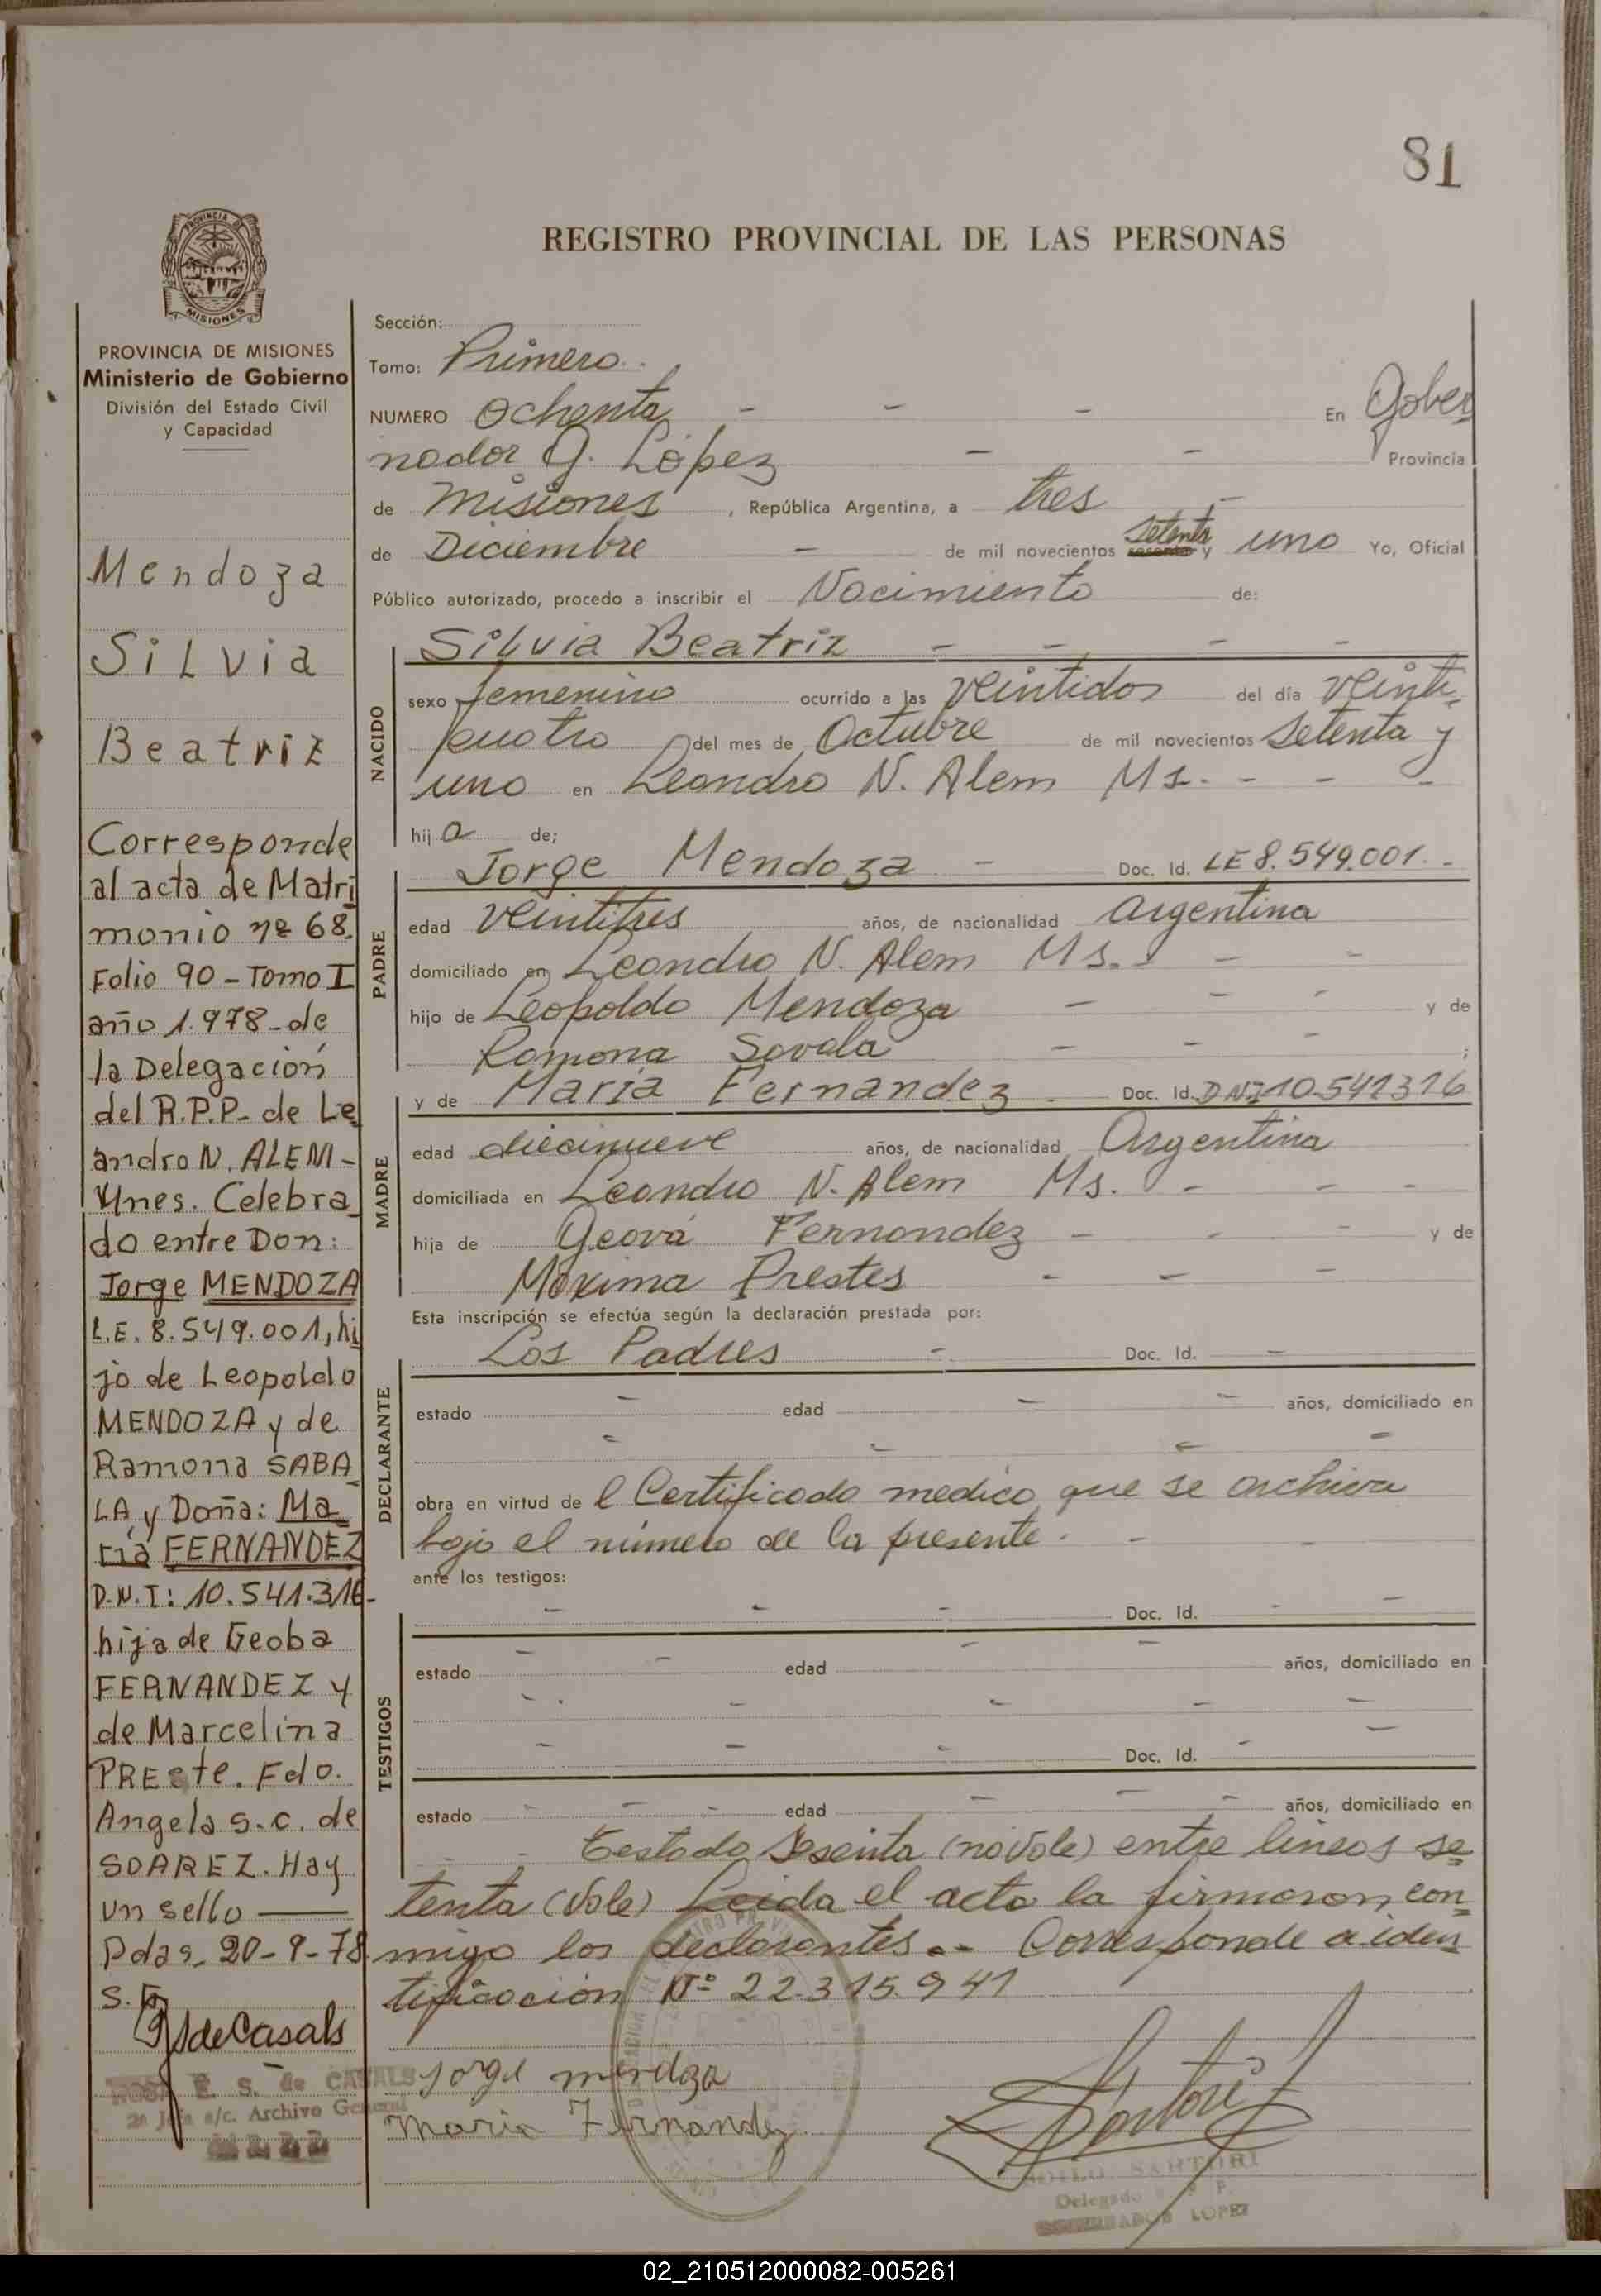 81
REGISTRO PROVINCIAL DE LAS PERSONAS
PROVINCIA
MISIONES
PROVINCIA DE MISIONES
Ministerio de Gobierno
División del Estado Civil
y Capacidad
Mendoza
Silvia
Beatriz
Corresponde
al acta de Matri
monio nº 68.
Folio 90 - Tomo I
año 1.978 - de
la Delegación
del R.P.P. de Le
andro N. ALEM -
Mnes. Celebra
do entre Don:
Jorge MENDOZA
L.E. 8.549.001, hi
jo de Leopoldo
MENDOZA y de
Ramona SABA
LA y Doña: Ma
ría FERNANDEZ
D.N.I: 10.541.316 -
hija de Geoba
FERNANDEZ y
de Marcelina
PREste. Fdo.
Angela S.C. de
SOAREZ. Hay
un sello
Pdas. 20-9-78
de Casals
E. S. de CASALS
a/c. Archivo General
Sección:
Tomo: Primero.
NUMERO Ochenta - - - En Gober
nador G. López - - Provincia
de Misiones , República Argentina, a tres -
de Diciembre - de mil novecientos setenta y uno Yo, Oficial
Público autorizado, procedo a inscribir el Nacimiento de:
NACIDO
Silvia Beatriz - - - -
sexo femenino ocurrido a las veintidos del día veinti
cuatro del mes de Octubre de mil novecientos setenta y
uno en Leandro N. Alem Ms. - - -
hija de;
PADRE
Jorge Mendoza - Doc. Id. LE 8.549.001. -
edad veintitres años, de nacionalidad argentina
domiciliado en Leandro N. Alem Ms. - - -
hijo de Leopoldo Mendoza - - - y de
Ramona Savala - - - ;
MADRE
y de María Fernandez - Doc. Id. DNI 10.541316
edad diecinueve años, de nacionalidad Argentina
domiciliada en Leandro N. Alem Ms. - - -
hija de Geová Fernandez - - - y de
Maxima Prestes - - -
Esta inscripción se efectúa según la declaración prestada por:
DECLARANTE
Los Padres - Doc. Id. -
estado - edad - - años, domiciliado en
- - - -
obra en virtud de l Certificado medico que se archiva
bajo el número de la presente. - -
ante los testigos:
TESTIGOS
- - - Doc. Id. - -
estado - - edad - - años, domiciliado en
- - - - -
- - - Doc. Id. - -
estado - - - edad - - - años, domiciliado en
- - Testado sesenta (no vale) entre lineas se
tenta (vale) Leida el acta la firmaron con
migo los declarantes.- Corresponde a iden
tificación Nº 22.315.941
Jorge mendoza
Maria Fernandez
SARTORI
Delegado
GOBERNADOR LOPEZ
02_210512000082-005261